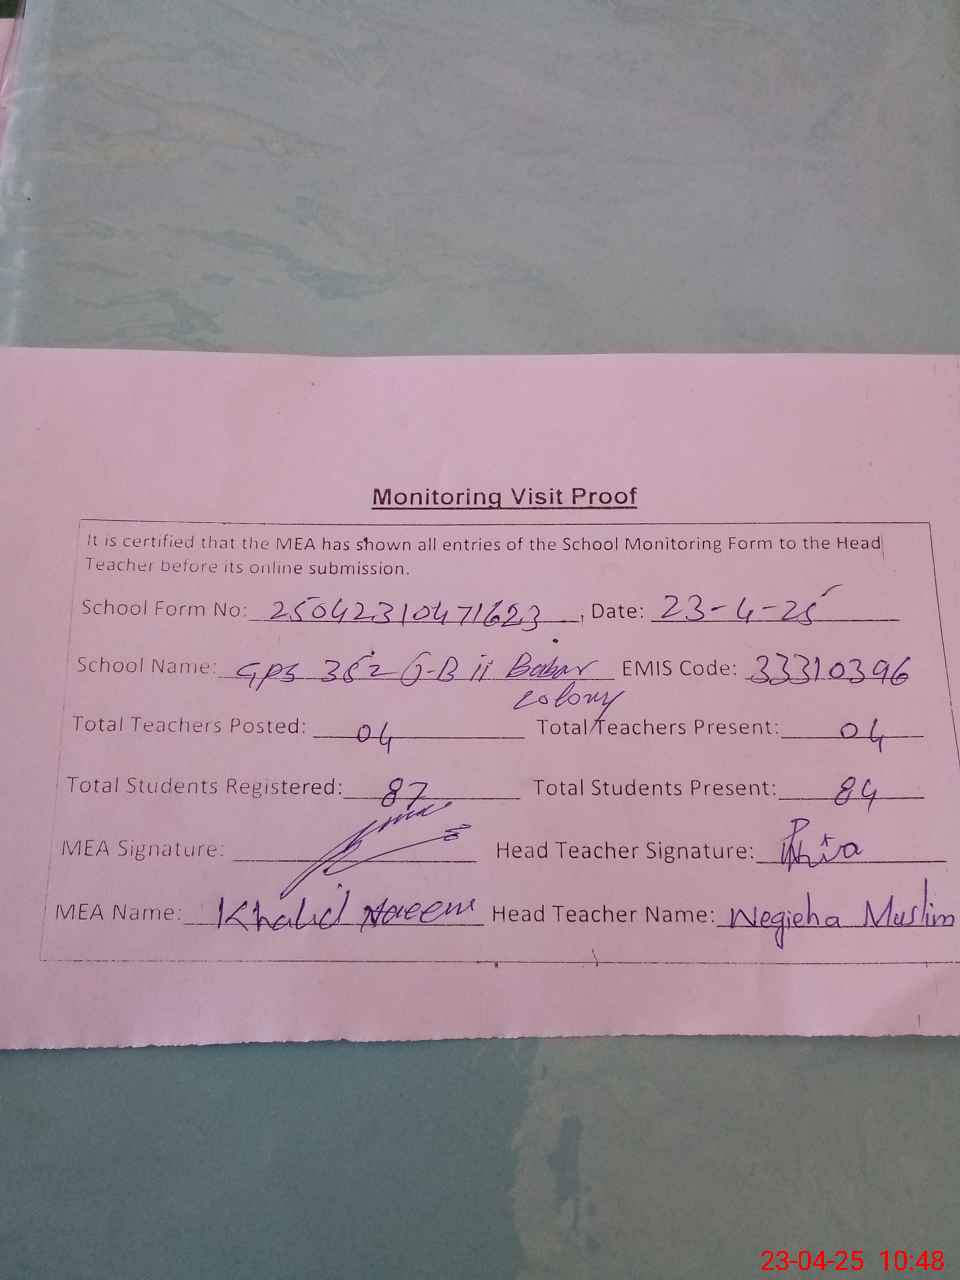 Monitoring Visit Proof
It is certified that the MEA has shown all entries of the School Monitoring Form to the Head
Teacher before its online submission.
School Form No: 25042310471623, Date: 23-4-25
School Name: GPS 352 G-B ii Babar EMIS Code: 33310396
colony
Total Teachers Posted: 04 Total Teachers Present: 04
Total Students Registered: 87 Total Students Present: 84
MEA Signature: Head Teacher Signature:
MEA Name: Khalid Naeem Head Teacher Name: Negieha Muslim
23-04-25 10:48